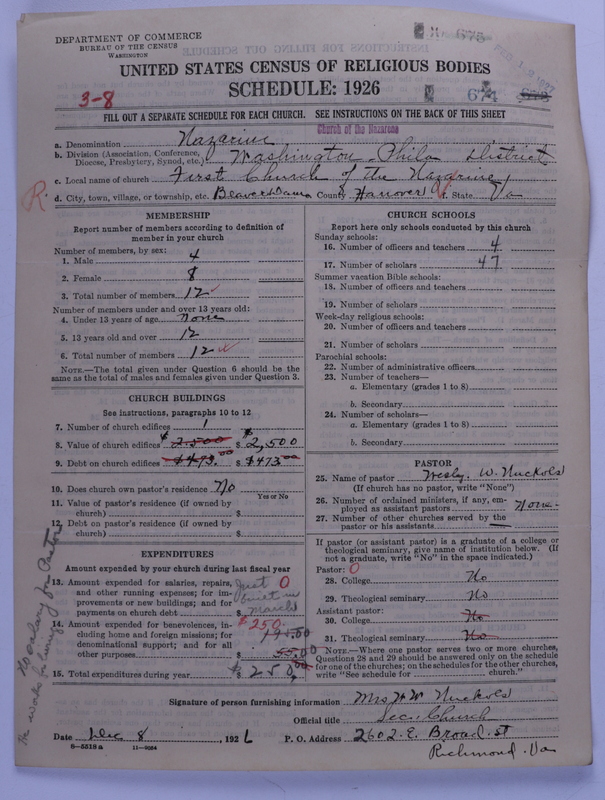 DEPARTMENT OF COMMERCE
BUREAU OF THE CENSUS
WASHINGTON
X 675
UNITED STATES CENSUS OF RELIGIOUS BODIES
SCHEDULE: 1926
3-8
674 673
FILL OUT A SEPARATE SCHEDULE FOR EACH CHURCH. SEE INSTRUCTIONS ON THE BACK OF THIS SHEET
Church of the Nazarene
a. Denomination Nazarine
b. Division (Association, Conference, Diocese, Presbytery, Synod, etc.) Washington-Phila District
c. Local name of church First Church of the Nazarine
R
d. City, town, village, or township, etc. Beaverdams County Hanover State Va
MEMBERSHIP
Report number of members according to definition of
member in your church
Number of members, by sex:
1. Male 4
2. Female 8
3. Total number of members 12
Number of members under and over 13 years old:
4. Under 13 years of age None
5. 13 years old and over 12
6. Total number of members 12
NOTE.—The total given under Question 6 should be the
same as the total of males and females given under Question 3.
CHURCH BUILDINGS
See instructions, paragraphs 10 to 12
7. Number of church edifices 1
8. Value of church edifices $2,500 $2,500
9. Debt on church edifices $473.00 $473.00
10. Does church own pastor's residence No
Yes or No
11. Value of pastor's residence (if owned by
church) $
12. Debt on pastor's residence (if owned by
church) $
EXPENDITURES
Amount expended by your church during last fiscal year
13. Amount expended for salaries, repairs,
and other running expenses; for im-
provements or new buildings; and for
payments on church debt Just 0
March
14. Amount expended for benevolences, in-
cluding home and foreign missions; for
denominational support; and for all
other purposes $250.
55.00
15. Total expenditures during year $250.00
No salary for Pastor
he works for living
CHURCH SCHOOLS
Report here only schools conducted by this church
Sunday schools:
16. Number of officers and teachers 4
17. Number of scholars 47
Summer vacation Bible schools:
18. Number of officers and teachers
19. Number of scholars
Week-day religious schools:
20. Number of officers and teachers
21. Number of scholars
Parochial schools:
22. Number of administrative officers
23. Number of teachers—
a. Elementary (grades 1 to 8)
b. Secondary
24. Number of scholars—
a. Elementary (grades 1 to 8)
b. Secondary
PASTOR
25. Name of pastor Wesley. W. Nuckols
(If church has no pastor, write "None")
26. Number of ordained ministers, if any, em-
ployed as assistant pastors None-
27. Number of other churches served by the
pastor or his assistants —
If pastor (or assistant pastor) is a graduate of a college or
theological seminary, give name of institution below. (If
not a graduate, write "No" in the space indicated.)
Pastor: 0
28. College No
29. Theological seminary No
Assistant pastor:
30. College No
31. Theological seminary No
NOTE.—Where one pastor serves two or more churches,
Questions 28 and 29 should be answered only on the schedule
for one of the churches; on the schedules for the other churches,
write "See schedule for church."
Signature of person furnishing information Mrs W W Nuckols
Official title Sec. Church
Date Dec 8, 1926 P. O. Address 2602. E. Broad. st
8-5518 a 11-9024
Richmond. Va